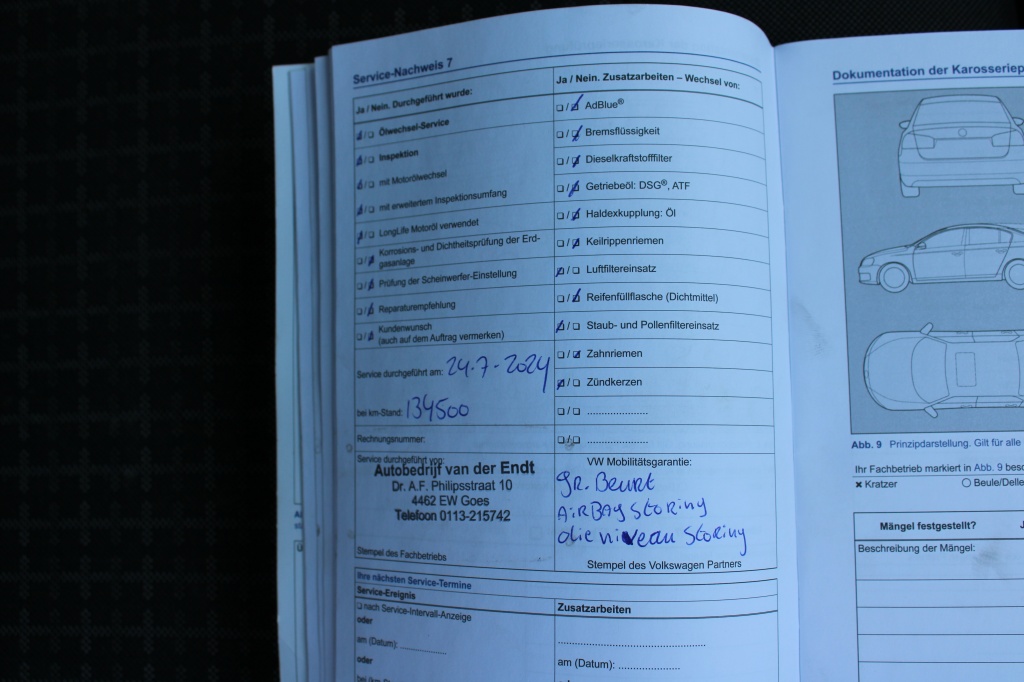 Service-Nachweis 7
Ja / Nein. Durchgeführt wurde:
❑/❑ Ölwechsel-Service
❑/❑ Inspektion
❑/❑ mit Motorölwechsel
❑/❑ mit erweitertem Inspektionsumfang
❑/❑ LongLife Motoröl verwendet
❑/❑ Korrosions- und Dichtheitsprüfung der Erd-
gasanlage
❑/❑ Prüfung der Scheinwerfer-Einstellung
❑/❑ Reparaturempfehlung
❑/❑ Kundenwunsch
(auch auf dem Auftrag vermerken)
Service durchgeführt am: 24-7-2024
bei km-Stand: 134500
Rechnungsnummer:
Service durchgeführt von:
Autobedrijf van der Endt
Dr. A.F. Philipsstraat 10
4462 EW Goes
Telefoon 0113-215742
Stempel des Fachbetriebs
Ja / Nein. Zusatzarbeiten – Wechsel von:
❑/❑ AdBlue®
❑/❑ Bremsflüssigkeit
❑/❑ Dieselkraftstofffilter
❑/❑ Getriebeöl: DSG®, ATF
❑/❑ Haldexkupplung: Öl
❑/❑ Keilrippenriemen
❑/❑ Luftfiltereinsatz
❑/❑ Reifenfüllflasche (Dichtmittel)
❑/❑ Staub- und Pollenfiltereinsatz
❑/❑ Zahnriemen
❑/❑ Zündkerzen
❑/❑ .....................
❑/❑ .....................
VW Mobilitätsgarantie:
gr. Beurt
AirBAg storing
olie niveau storing
Stempel des Volkswagen Partners
Ihre nächsten Service-Termine
Service-Ereignis
❑ nach Service-Intervall-Anzeige
oder
am (Datum): ................
oder
Zusatzarbeiten
..................................................
am (Datum): .....................
Dokumentation der Karosseriep
Abb. 9 Prinzipdarstellung. Gilt für alle
Ihr Fachbetrieb markiert in Abb. 9 besc
✖ Kratzer
○ Beule/Delle
Mängel festgestellt?
J
Beschreibung der Mängel: